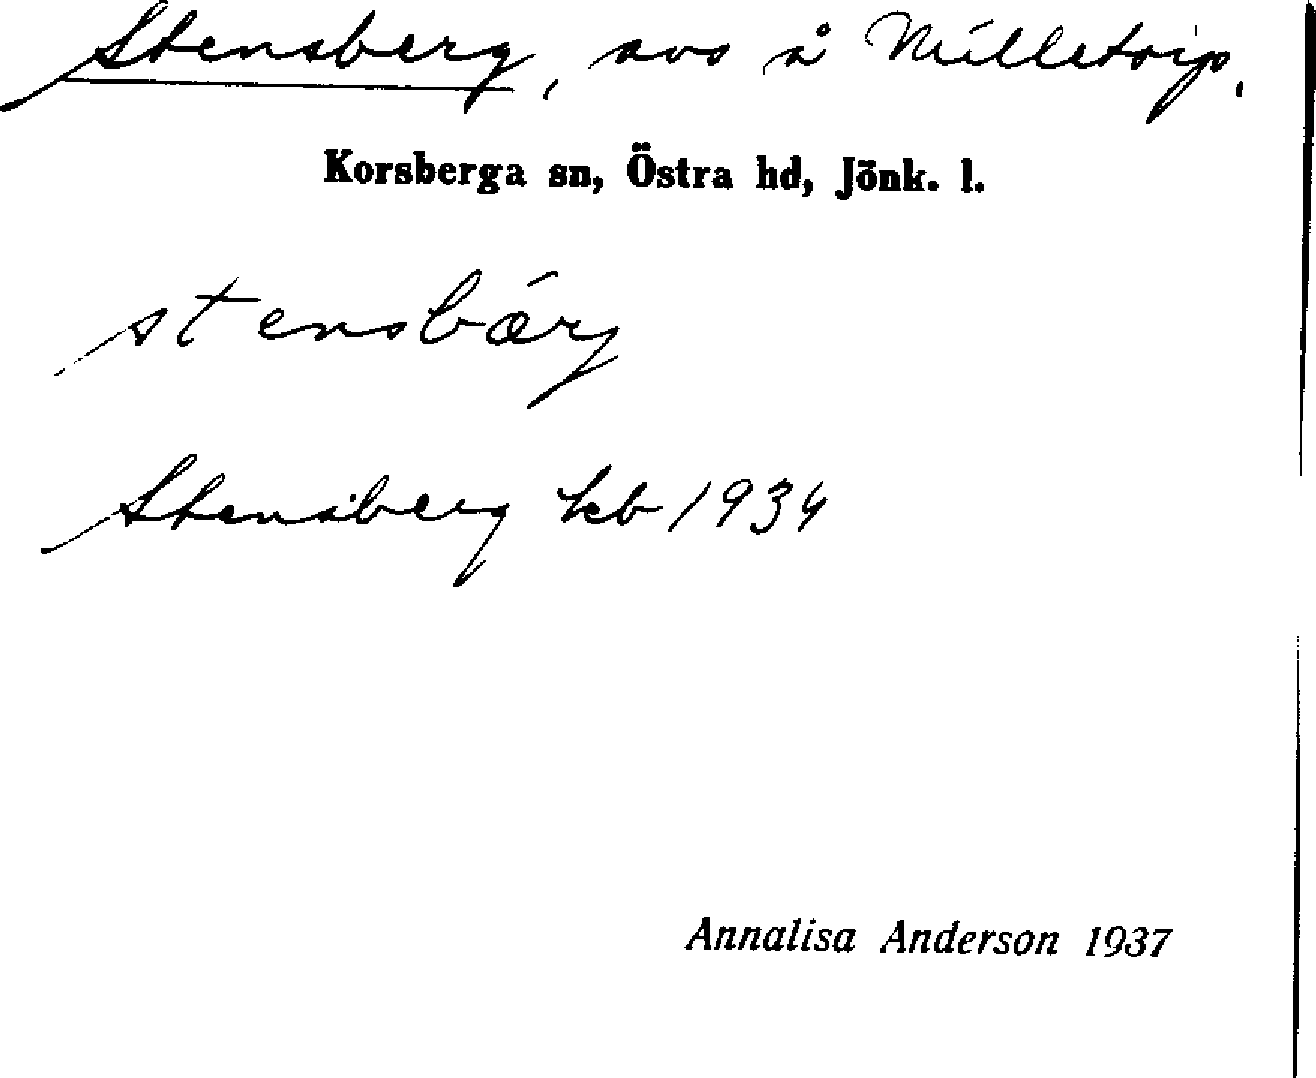 Stensberg, avs å Milletorp,
Korsberga sn, Östra hd, Jönk. l.
stensbǽrj
Stensberg kb 1934
Annalisa Anderson 1937